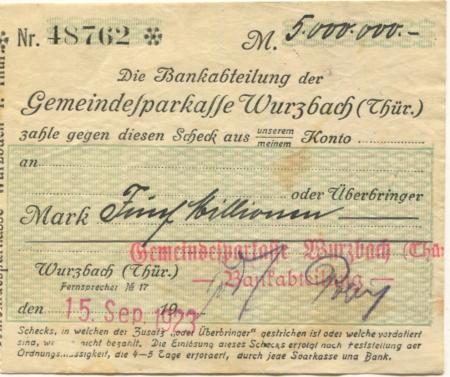 Nr. 48762 M. 5.000.000.-
Die Bankabteilung der
Gemeindesparkasse Wurzbach (Thür.)
zahle gegen diesen Scheck aus unserem
meinem Konto
an
oder Überbringer
Mark Fünf Millionen
Gemeindesparkasse Wurzbach (Thür
— Bankabteilung —
Wurzbach (Thür.)
Fernsprecher № 17
den 15. Sep. 1923
Schecks, in welchen der Zusatz „oder Überbringer" gestrichen ist oder welche vordatiert
sind, nicht bezahlt. Die Einlösung dieses Schecks erfolgt nach Feststellung der
Ordnungsmässigkeit, die 4—5 Tage erfordert, durch jede Sparkasse und Bank.